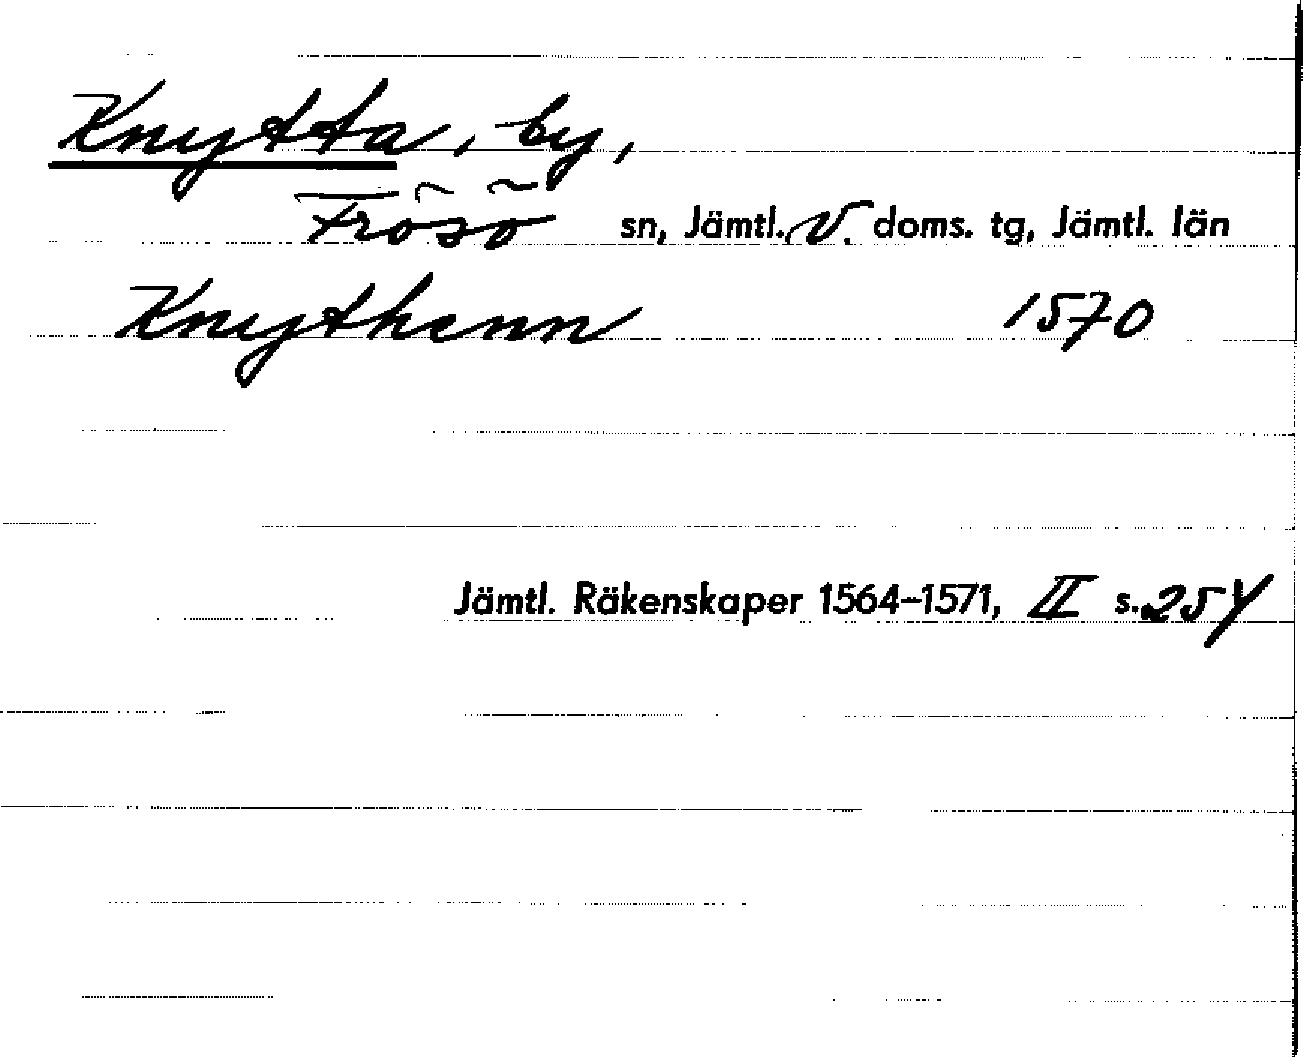 Knytta, by,
Frösö sn, Jämtl. v. doms. tg, Jämtl. län
Knythenn 1570
Jämtl. Räkenskaper 1564-1571, II s. 254